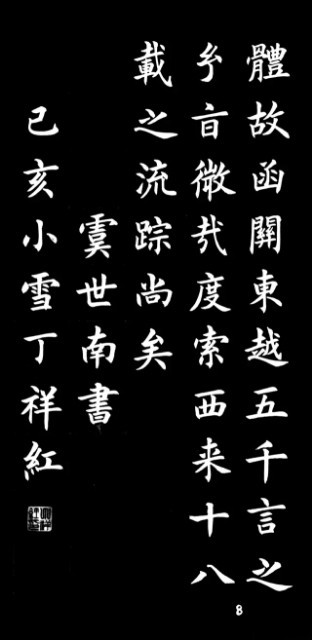 體故函關東越五千言之
㫖微㢤度索西来十八
載之流踪尚矣
虞世南書
己亥小雪丁祥紅
8